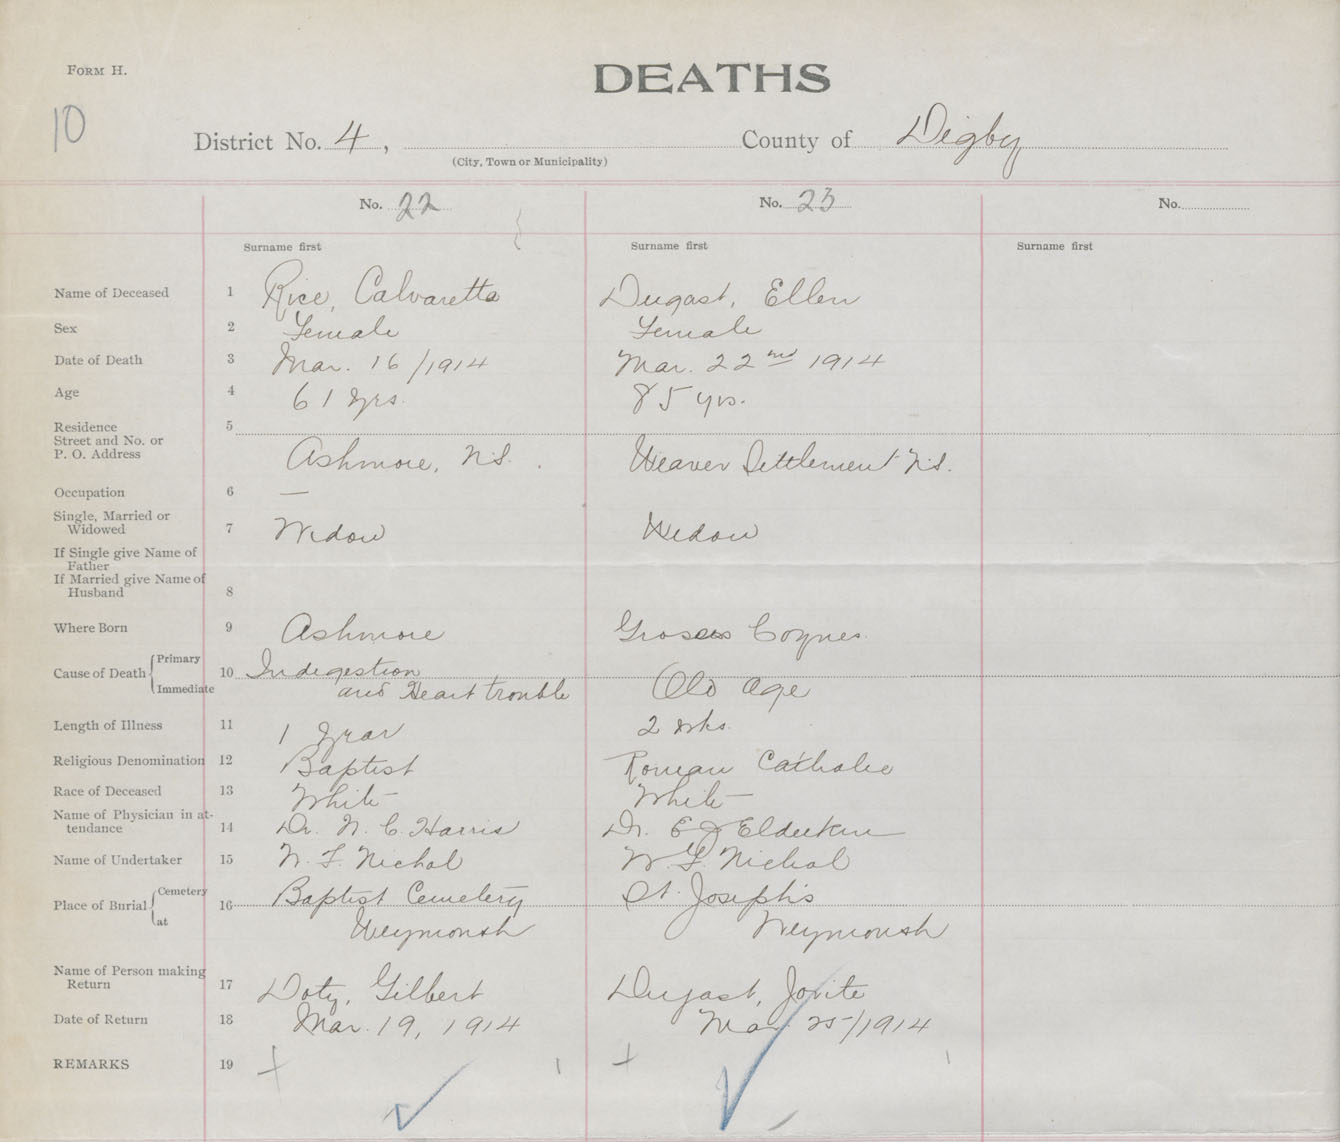 FORM H.
DEATHS
10
District No. 4, County of Digby
(City, Town or Municipality)
No. 22 No. 23 No.
Surname first Surname first Surname first
Name of Deceased 1 Rice, Calvaretta Dugast, Ellen
Sex 2 Female Female
Date of Death 3 Mar. 16/1914 Mar. 22nd 1914
Age 4 61 yrs. 85 yrs.
Residence 5
Street and No. or
P. O. Address Ashmore, N.S. Weaver Settlement N.S.
Occupation 6 —
Single, Married or
Widowed 7 Widow Widow
If Single give Name of
Father
If Married give Name of
Husband 8
Where Born 9 Ashmore Grosses Coques
Cause of Death Primary 10 Indigestion
Immediate and Heart trouble Old age
Length of Illness 11 1 year 2 wks.
Religious Denomination 12 Baptist Roman Catholic
Race of Deceased 13 White White
Name of Physician in at-
tendance 14 Dr. N. C. Harris Dr. E J Elderkin
Name of Undertaker 15 W. F. Nichol W F Nichol
Place of Burial Cemetery 16 Baptist Cemetery St. Joseph's
at Weymouth Weymouth
Name of Person making
Return 17 Doty, Gilbert Dugast, Jovite
Date of Return 18 Mar. 19, 1914 Mar 25/1914
REMARKS 19